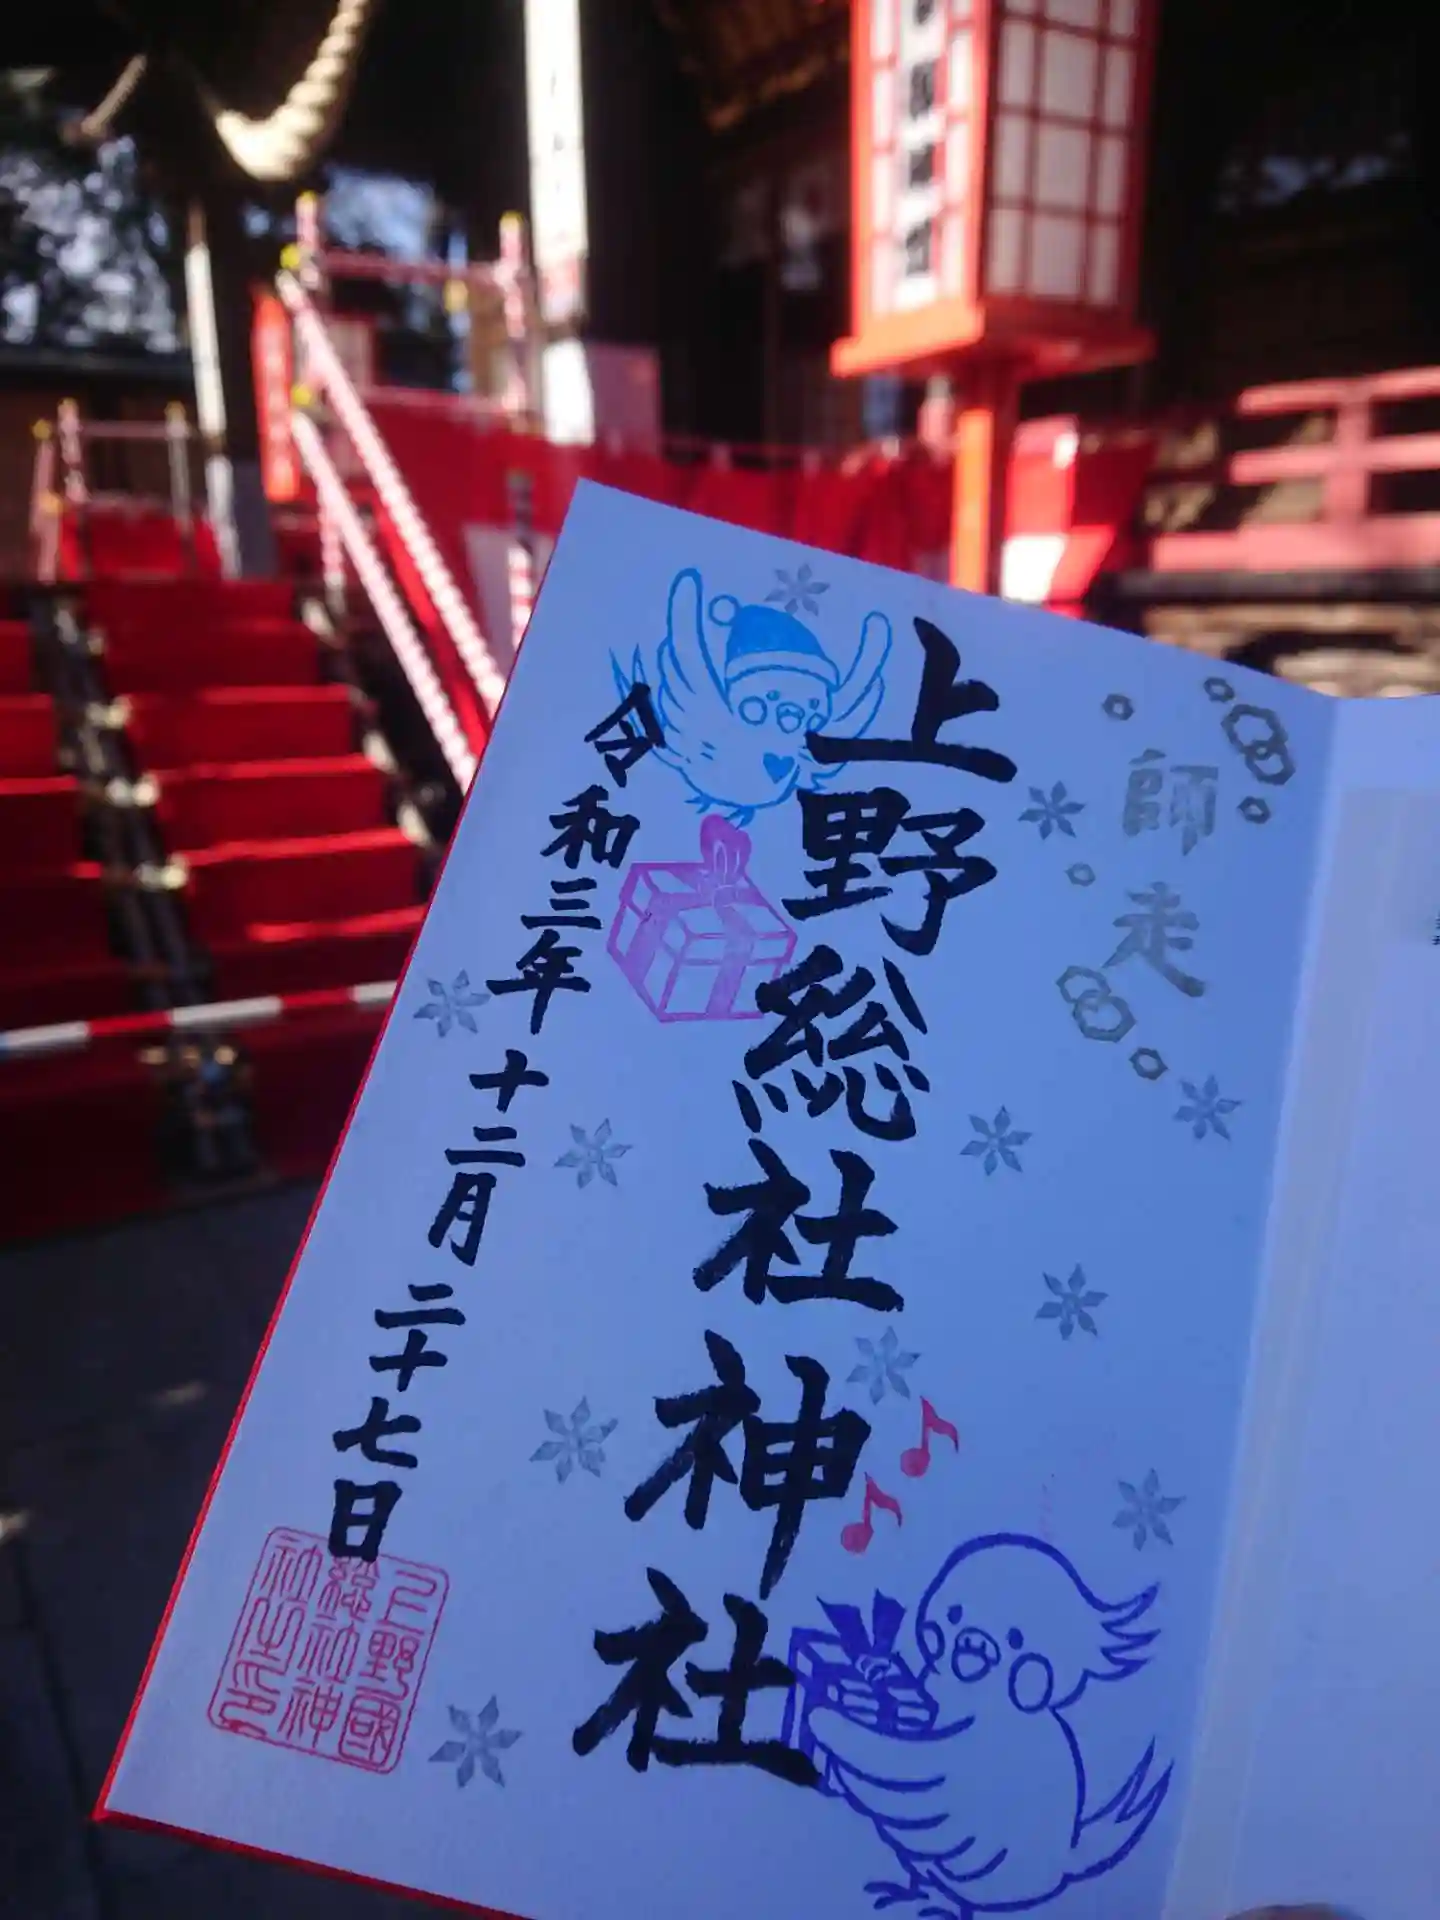 師走
上野総社神社
令和三年十二月二十七日
上野國
総社神
社之印